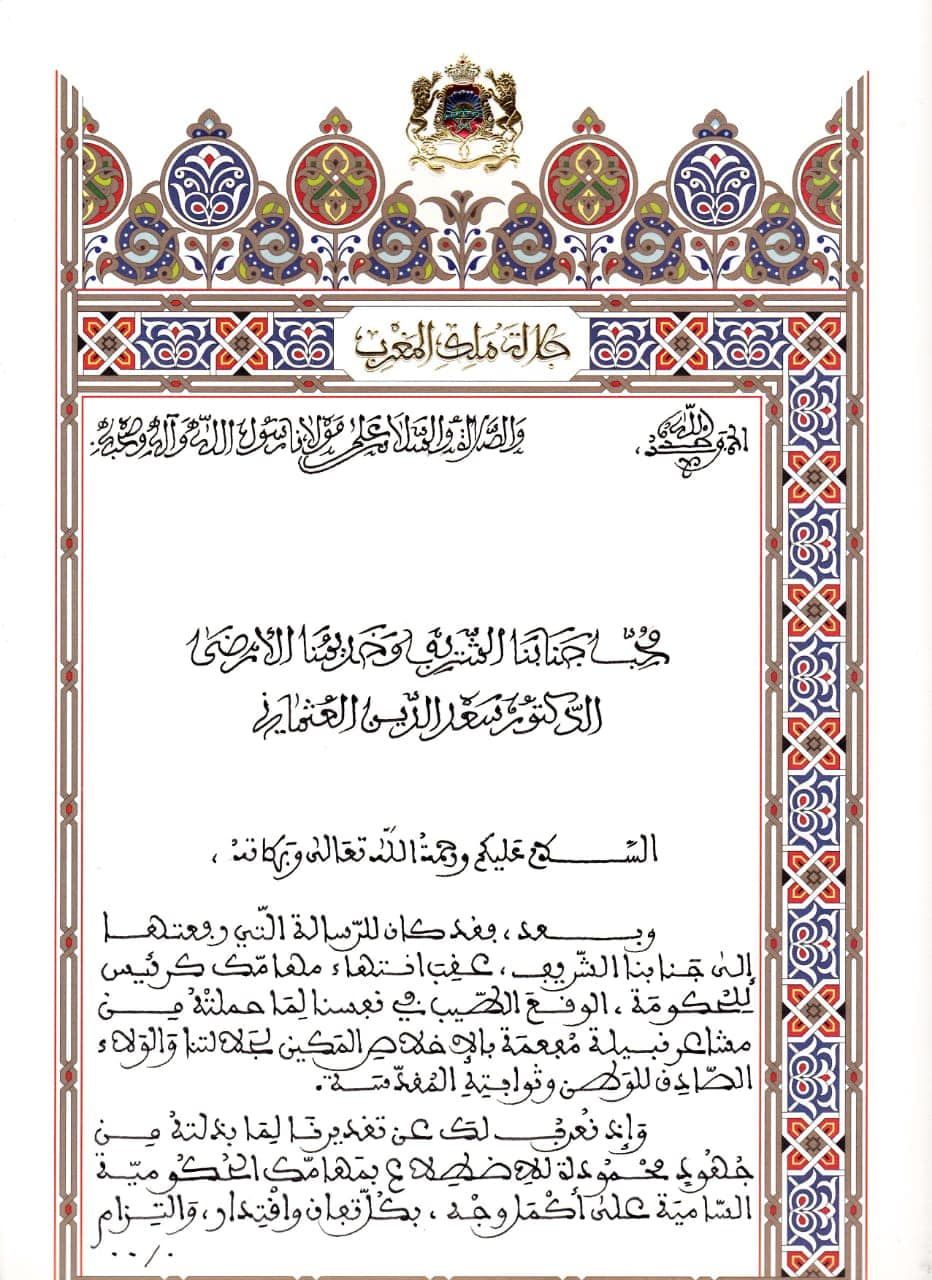 جلالة ملك المغرب
الحمد لله وحده، والصلاة والسلام على مولانا رسول الله وآله وصحبه
محب جنابنا الشريف وخديمنا الأرضى
الدكتور سعد الدين العثماني
السلام عليكم ورحمة الله تعالى وبركاته،
وبعد، فقد كان للرسالة التي رفعتها
إلى جنابنا الشريف، عقب انتهاء مهامك كرئيس
للحكومة، الوقع الطيب في نفسنا لما حملته من
مشاعر نبيلة مفعمة بالإخلاص المكين لجلالتنا والولاء
الصادق للوطن وثوابته المقدسة.
وإذ نعرب لك عن تقديرنا لما بذلته من
جهود محمودة للاضطلاع بمهامك الحكومية
السامية على أكمل وجه، بكل تفان واقتدار، والتزام
٠/٠٠